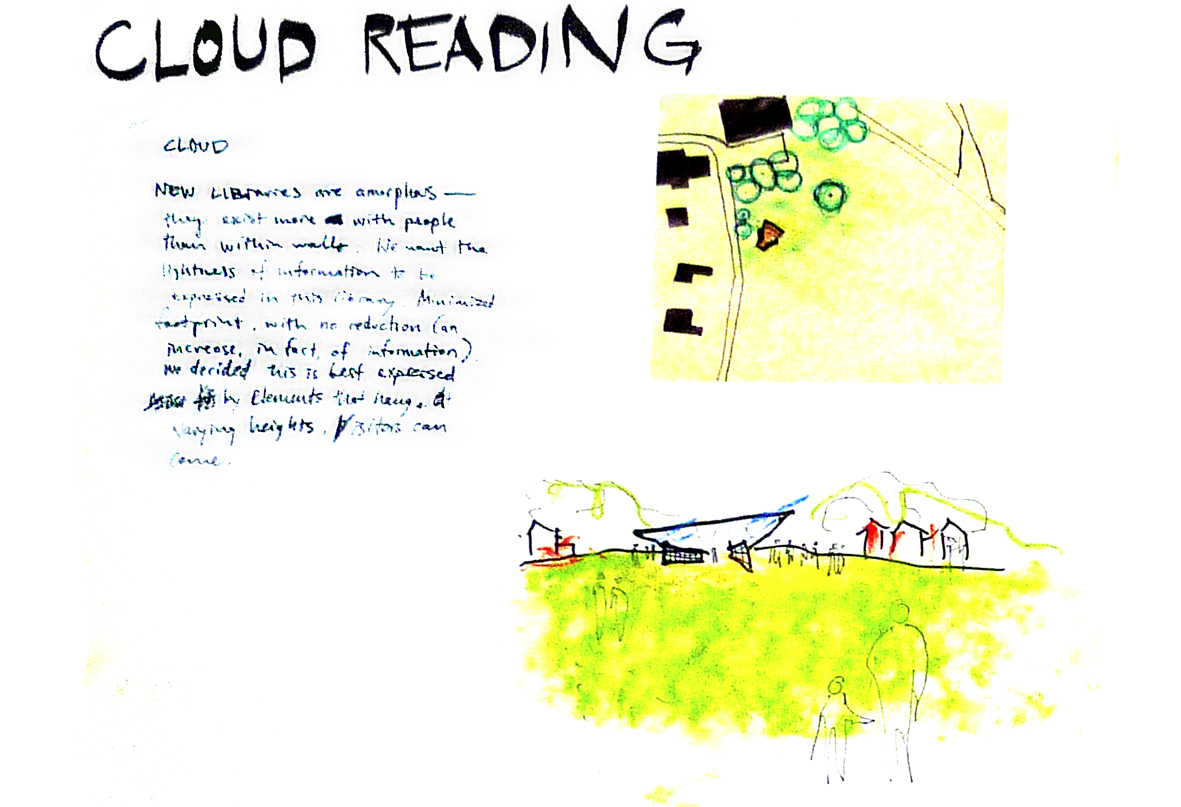 CLOUD READING
CLOUD
NEW LIBraries are amorphous —
they exist more with people
than within walls. We want the
lightness of information to be
expressed in this library. Minimized
footprint, with no reduction (an
increase, in fact, of information).
We decided this is best expressed
by Elements that hang. at
varying heights. Visitors can
come.